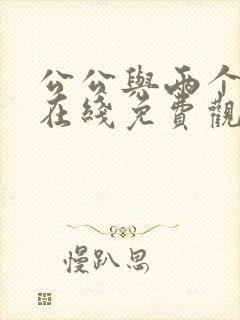 公公與兩个
在綫免費觀
慢趴思